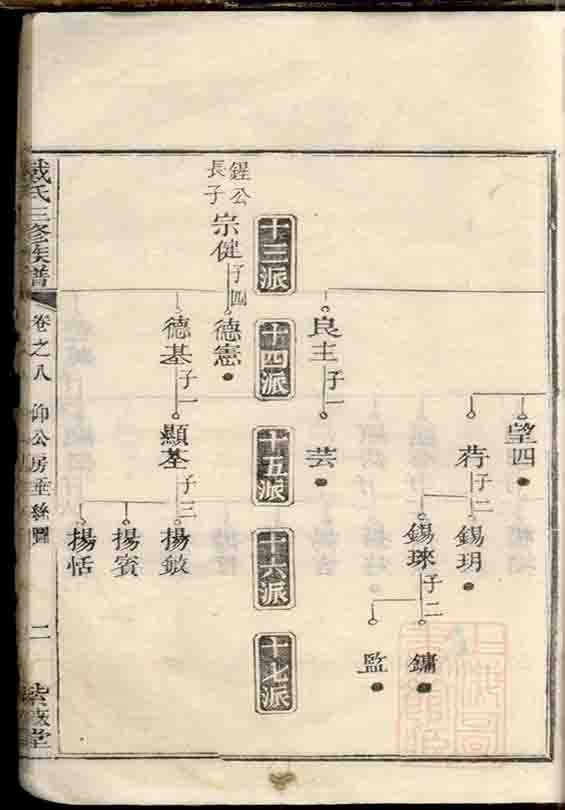 望四
荮 子二
錫玥
錫琜 子二
鏞
監
良主 子一
芸
十三派
十四派
十五派
十六派
十七派
鍟公
長子
宗健 子四
德憲
德基 子一
顯荃 子三
揚敏
揚賓
揚恬
戴氏三修族譜
卷之八
仰公房垂絲圖
二